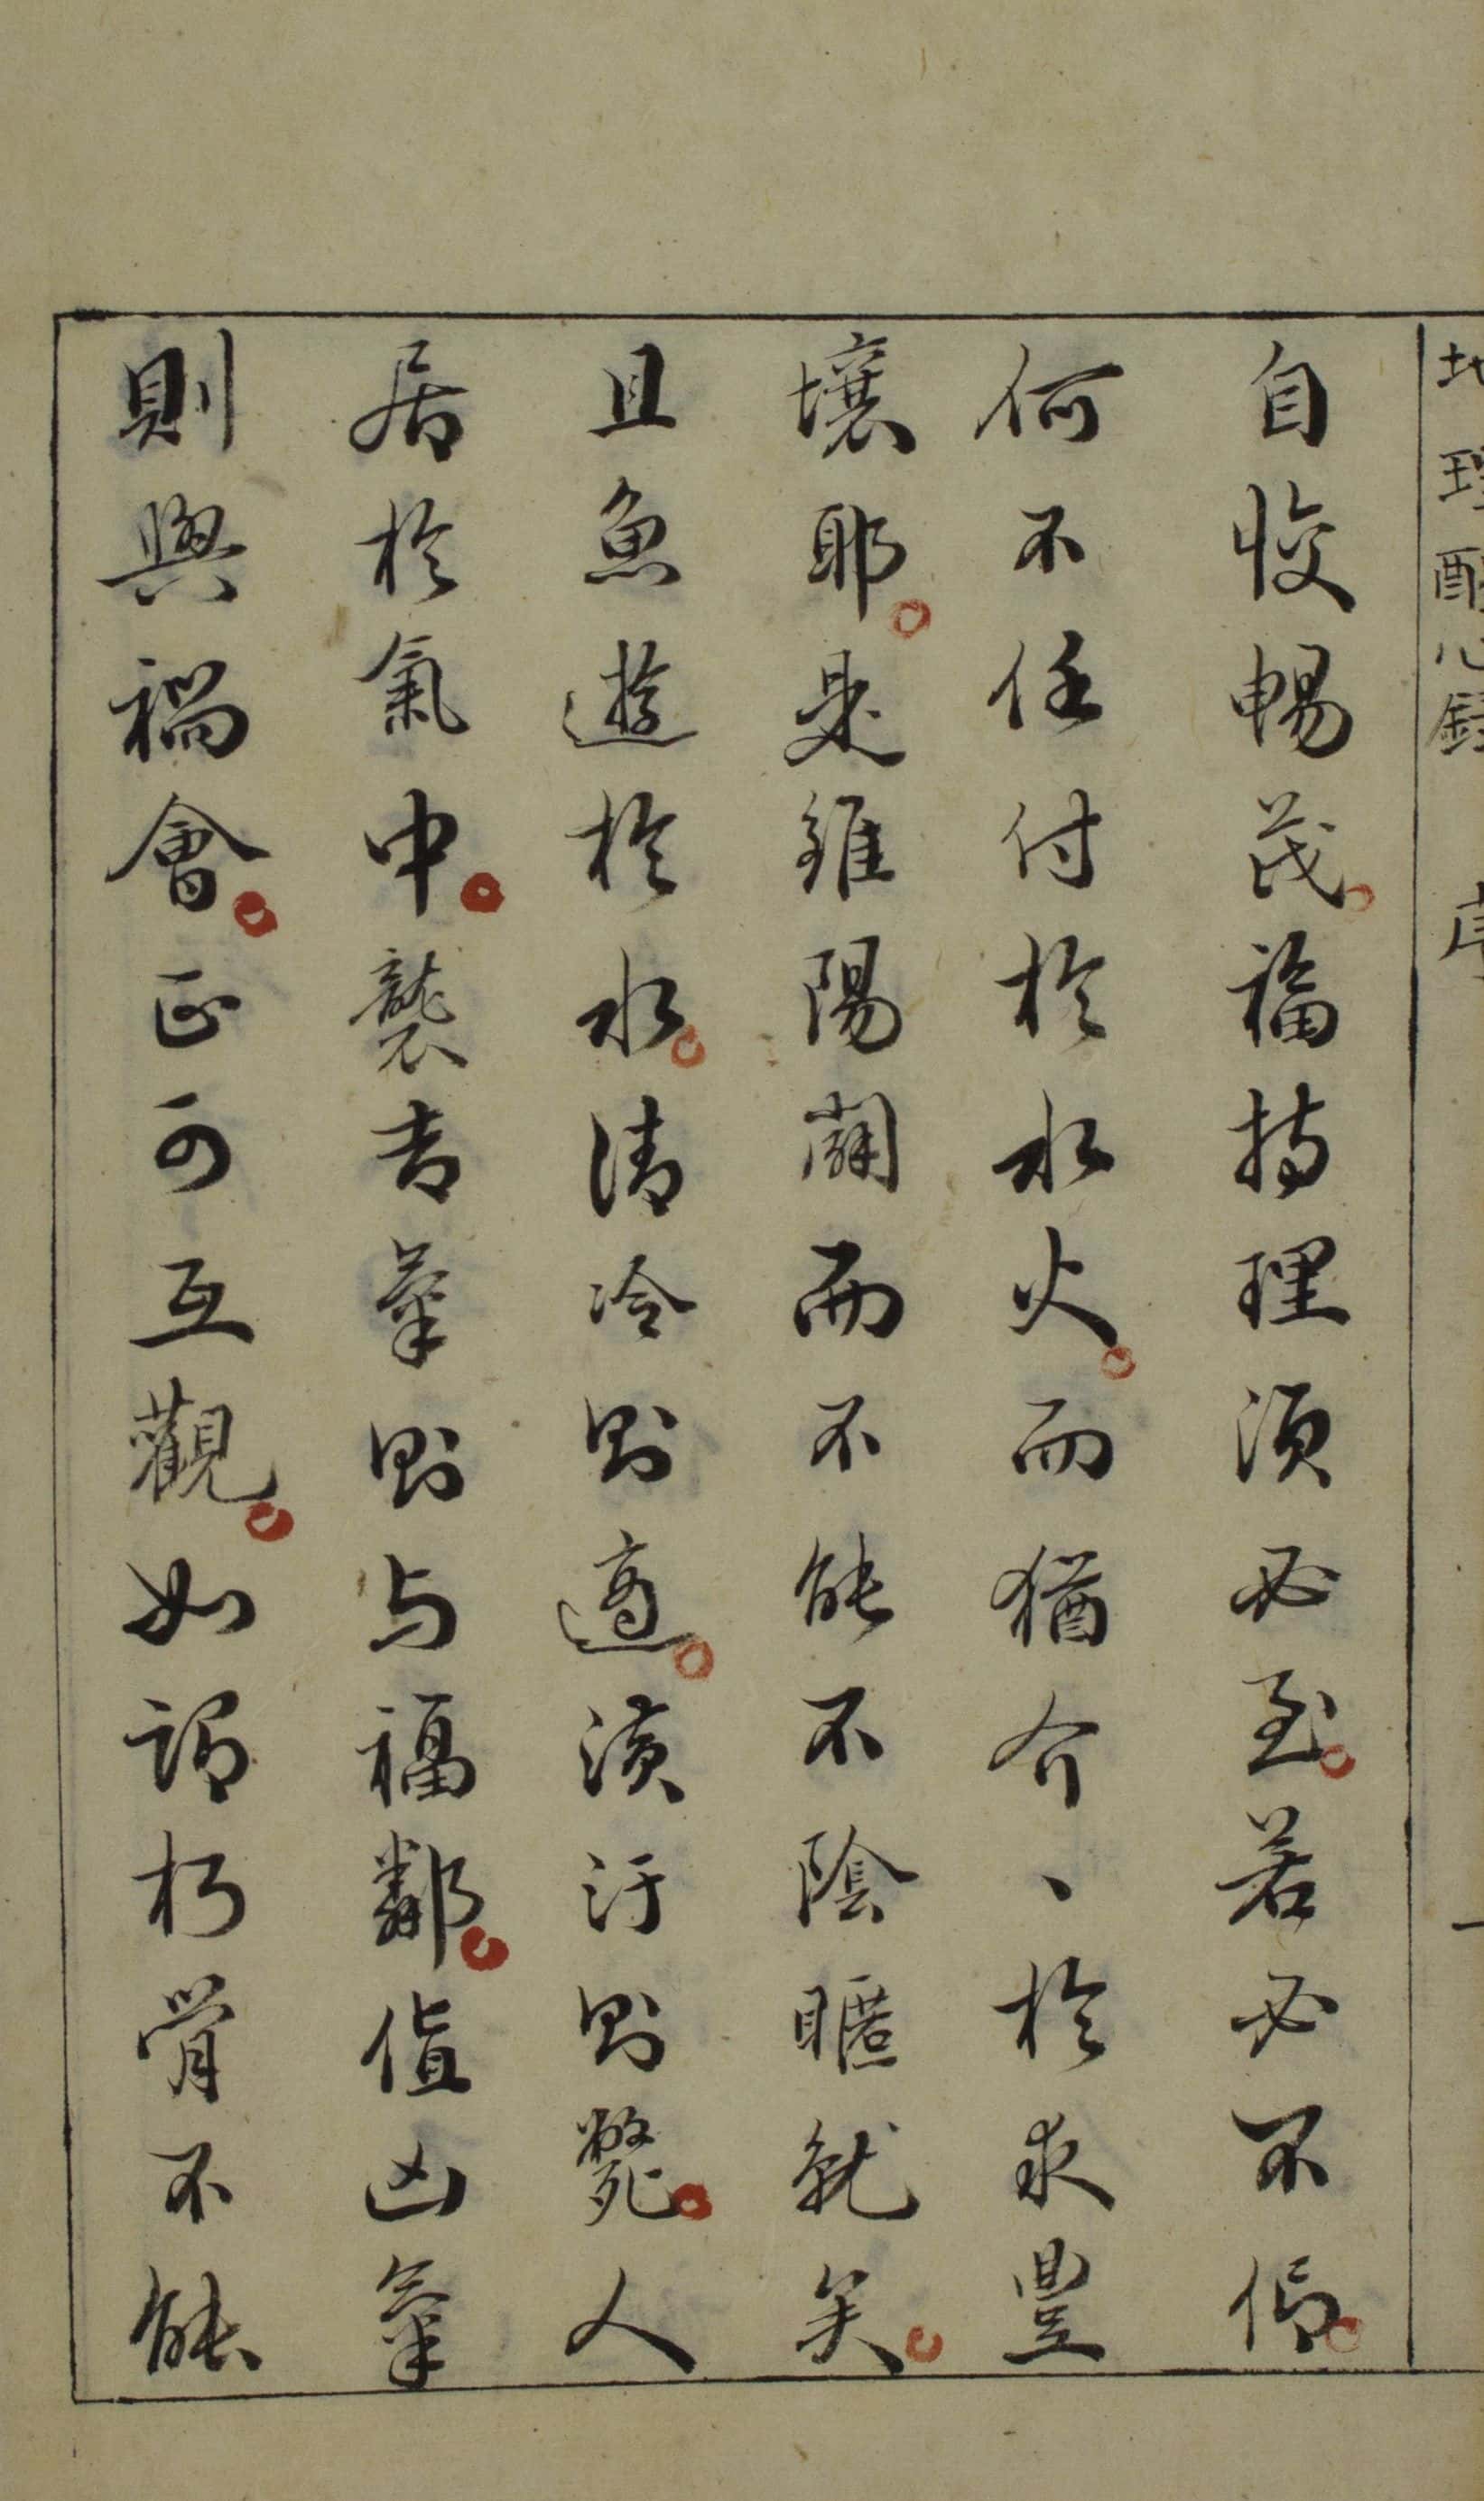 地理醒心錄 序 一
自悛暢茂福持理須必至若必不偽
何不任付於水火而猶介、於求豐
壤耶是雖陽闢而不能不陰暱就矣
且魚遊於水清冷則適潢汙則斃人
居於氣中襲吉氣則与福鄰値凶氣
則與禍會正可互觀如謂朽骨不能